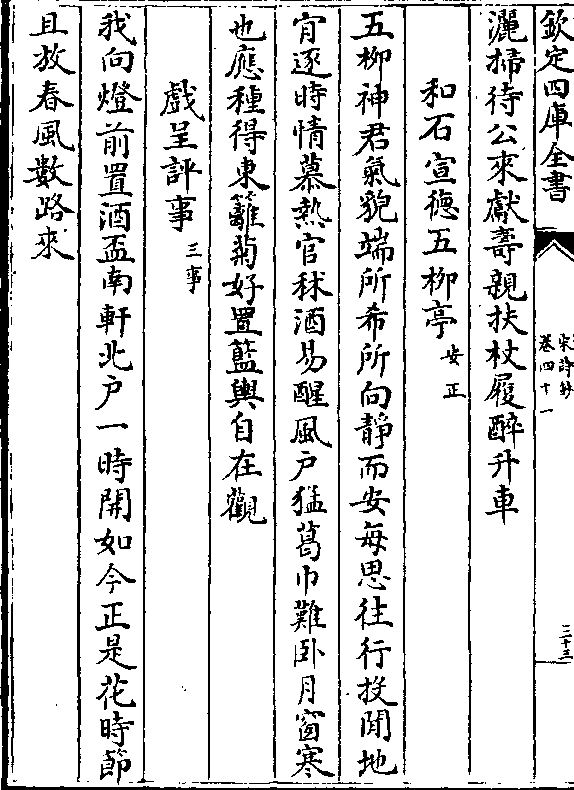 欽定四庫全書
宋詩鈔
卷四十一
三十三
灑掃待公來獻壽親扶杖屨醉升車
和石宣德五柳亭安正
五柳神君氣貌端所希所向靜而安每思往行投閒地
肯逐時情慕熱官秫酒易醒風户猛葛巾難卧月窗寒
也應種得東籬菊好置藍輿自在觀
戲呈評事三事
我向燈前置酒盃南軒北户一時開如今正是花時節
且放春風數路來